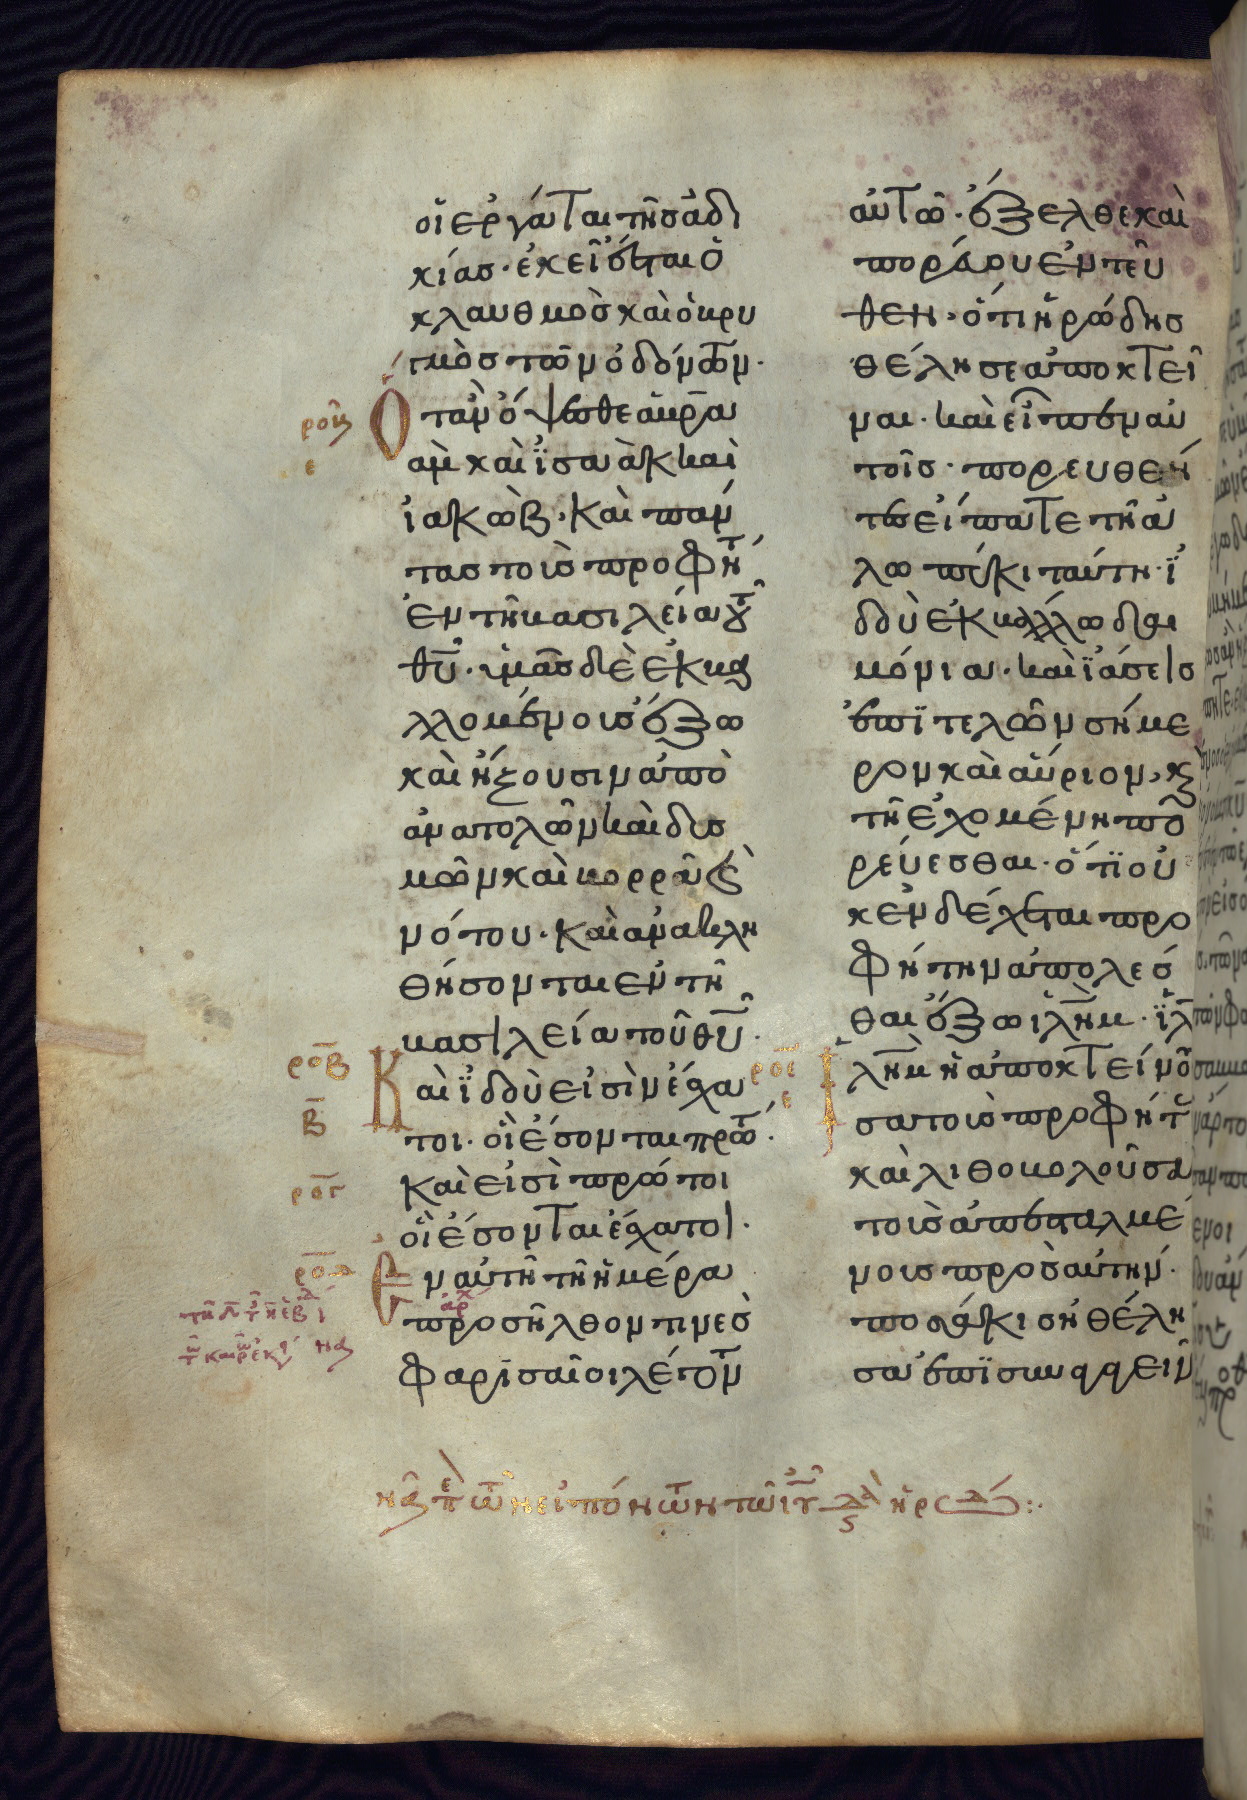 οἱ ἐργάται τῆς ἀδι
κίας· ἐκεῖ ἔσται ὁ
κλαυθμὸς καὶ ὁ βρυ
γμὸς τῶν ὀδόντων·
Ὅταν ὄψεσθε ἀβρα
ὰμ καὶ ἰσαὰκ καὶ
ἰακὼβ· καὶ πάν
τας τοὺς προφήτ
ἐν τῆ βασιλεία τοῦ
θῦ· ὑμᾶς δὲ ἐκβα
λλομένους ἔξω
καὶ ἥξουσιν ἀπὸ
ἀνατολῶν καὶ δυσ
μῶν καὶ βορρᾶ καὶ
νότου· καὶ ἀνακλη
θήσονται ἐν τῆ
βασιλεία τοῦ θῦ·
Καὶ ἰδοὺ εἰσὶν ἔσχα
τοι· οἳ ἔσονται πρῶτ·
καὶ εἰσὶ πρῶτοι
οἳ ἔσονται ἔσχατοι·
Ἐν αὐτῆ τῆ ἡμέρα
προσῆλθον τινὲς
φαρισαῖοι λέγοντ
αὐτῶ· ἔξελθε καὶ
πορεύου ἐντεῦ
θεν· ὅτι ἡρώδης
θέλη σε ἀποκτεῖ
ναι· καὶ εἶπεν αὐ
τοῖς· πορευθέν
τες εἴπατε τῆ ἀ
λώπεκι ταύτη· ἰ
δοὺ ἐκβάλλω δαι
μόνια· καὶ ἰάσεις
ἐπιτελῶ σήμε
ρον καὶ αὔριον, κ
τῆ ἐχομένη πο
ρεύεσθαι· ὅτι οὐ
κ ἐνδέχεται προ
φήτην ἀπολέσ
θαι ἔξω ιλημ· ιλ
λημ ἡ ἀποκτείνου
σα τοὺς προφήτ
καὶ λιθοβολοῦσα
τοὺς ἀπεσταλμέ
νους πρὸς αὐτήν·
ποσάκις ἠθέλη
σα ἐπισυναγαγεῖν
ροβ
β
ρογ
ροδ
ροε
ε